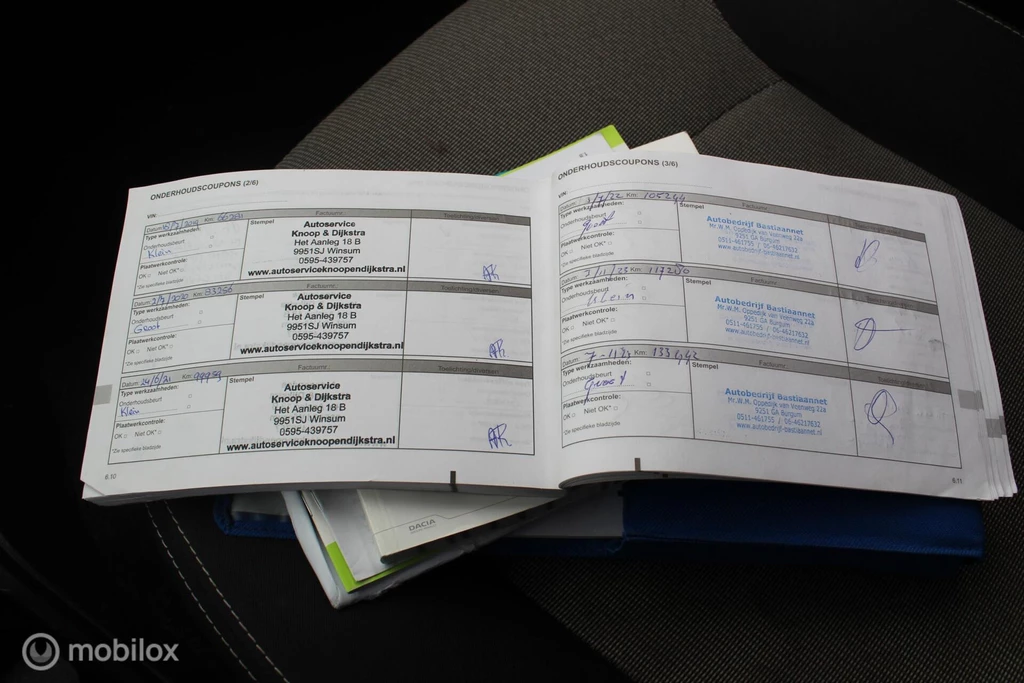 ONDERHOUDSCOUPONS (2/6)
VIN:
Datum: Km: Factuurnr.:
Type werkzaamheden: Stempel
Onderhoudsbeurt
Klein
Plaatwerkcontrole:
OK Niet OK*
*De specifieke bladzijde
Autoservice
Knoop & Dijkstra
Het Aanleg 18 B
9951SJ Winsum
0595-439757
www.autoserviceknoopendijkstra.nl
AR
Datum: 2/7/2020 Km: 83256 Factuurnr.:
Type werkzaamheden: Stempel
Onderhoudsbeurt
Groot
Plaatwerkcontrole:
OK Niet OK*
*De specifieke bladzijde
Autoservice
Knoop & Dijkstra
Het Aanleg 18 B
9951SJ Winsum
0595-439757
www.autoserviceknoopendijkstra.nl
AR
Datum: 24/6/21 Km: 99959 Factuurnr.:
Type werkzaamheden: Stempel
Onderhoudsbeurt
Klein
Plaatwerkcontrole:
OK Niet OK*
*De specifieke bladzijde
Autoservice
Knoop & Dijkstra
Het Aanleg 18 B
9951SJ Winsum
0595-439757
www.autoserviceknoopendijkstra.nl
AR
6.10
ONDERHOUDSCOUPONS (3/6)
VIN:
Datum: Km: 105244 Factuurnr.:
Type werkzaamheden: Stempel
Onderhoudsbeurt
groot
Plaatwerkcontrole:
OK Niet OK*
*De specifieke bladzijde
Autobedrijf Bastiaannet
Mr.W.M. Oppedijk van Veenweg 22a
9251 GA Burgum
0511-461755 / 06-46217632
www.autobedrijf-bastiaannet.nl
Datum: 7/11/23 Km: 117280 Factuurnr.:
Type werkzaamheden: Stempel
Onderhoudsbeurt
klein
Plaatwerkcontrole:
OK Niet OK*
*De specifieke bladzijde
Autobedrijf Bastiaannet
Mr.W.M. Oppedijk van Veenweg 22a
9251 GA Burgum
0511-461755 / 06-46217632
www.autobedrijf-bastiaannet.nl
Datum: Km: 133442 Factuurnr.:
Type werkzaamheden: Stempel
Onderhoudsbeurt
groot
Plaatwerkcontrole:
OK Niet OK*
*De specifieke bladzijde
Autobedrijf Bastiaannet
Mr.W.M. Oppedijk van Veenweg 22a
9251 GA Burgum
0511-461755 / 06-46217632
www.autobedrijf-bastiaannet.nl
6.11
DACIA
mobilox